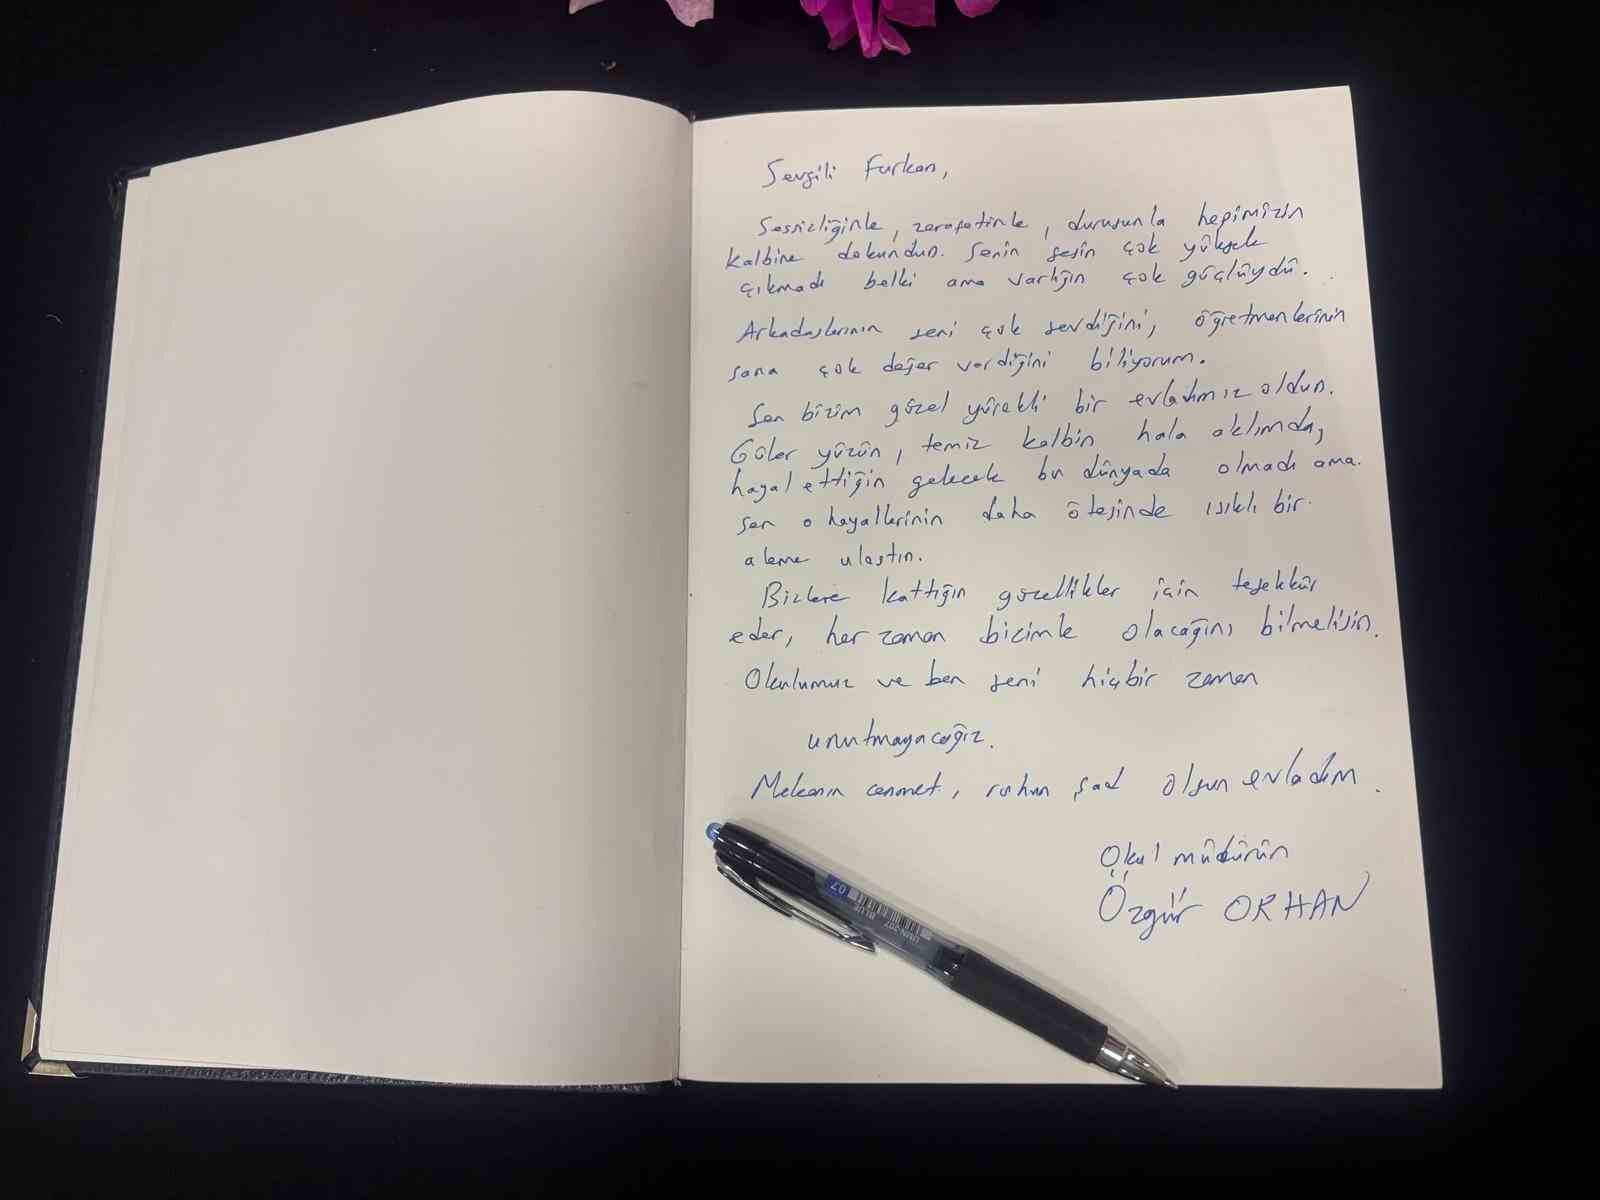 Sevgili Furkan,
Sessizliğinle, zerafetinle, duruşunla hepimizin
kalbine dokundun. Senin sesin çok yüksek
çıkmadı belki ama varlığın çok güçlüydü.
Arkadaşlarının seni çok sevdiğini, öğretmenlerinin
sana çok değer verdiğini biliyorum.
Sen bizim güzel yürekli bir evladımız oldun.
Güler yüzün, temiz kalbin hala aklımda,
hayal ettiğin gelecek bu dünyada olmadı ama
sen o hayallerinin daha ötesinde ışıklı bir
aleme ulaştın.
Bizlere kattığın güzellikler için teşekkür
eder, her zaman bizimle olacağını bilmelisin.
Okulumuz ve ben seni hiçbir zaman
unutmayacağız.
Mekanın cennet, ruhun şad olsun evladım.
Okul müdürün
Özgür ORHAN
UMN-207
BLUE
07